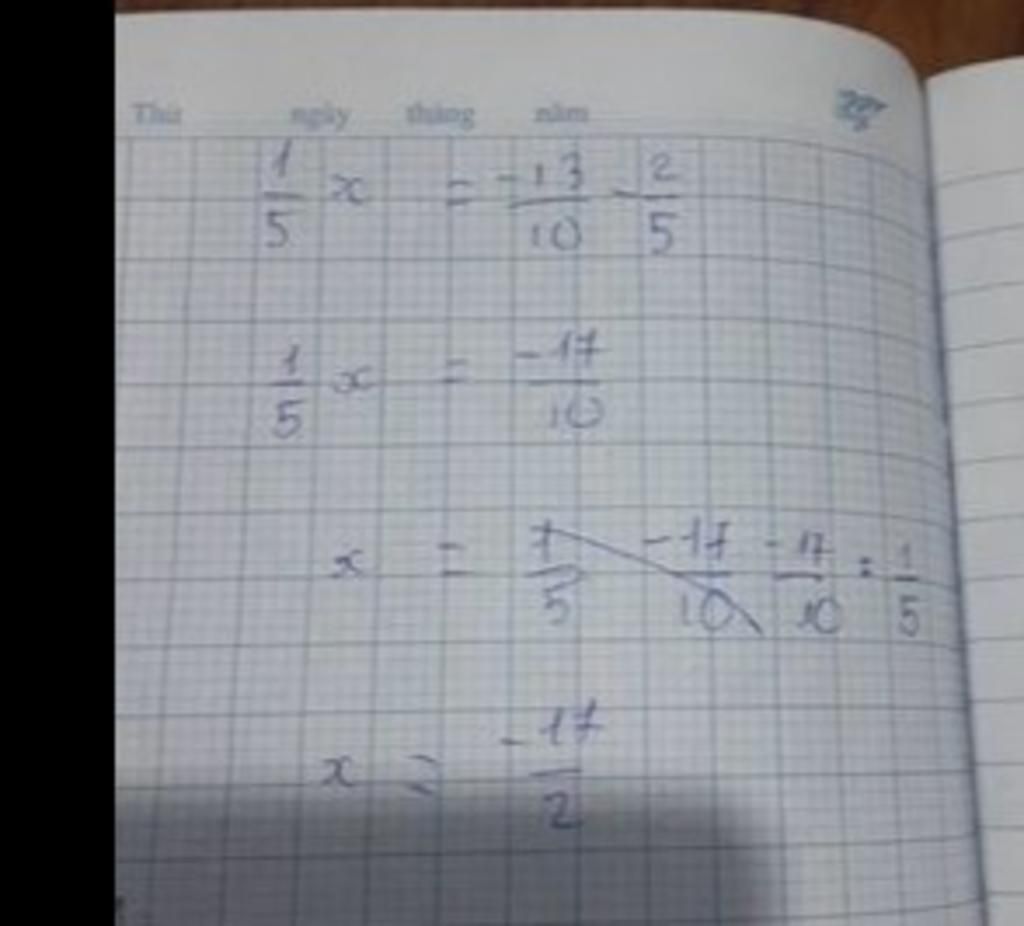 Thứ ngày tháng năm
1/5 x = -13/10 - 2/5
1/5 x = -17/10
x = -17/10 : 1/5
x = -17/2